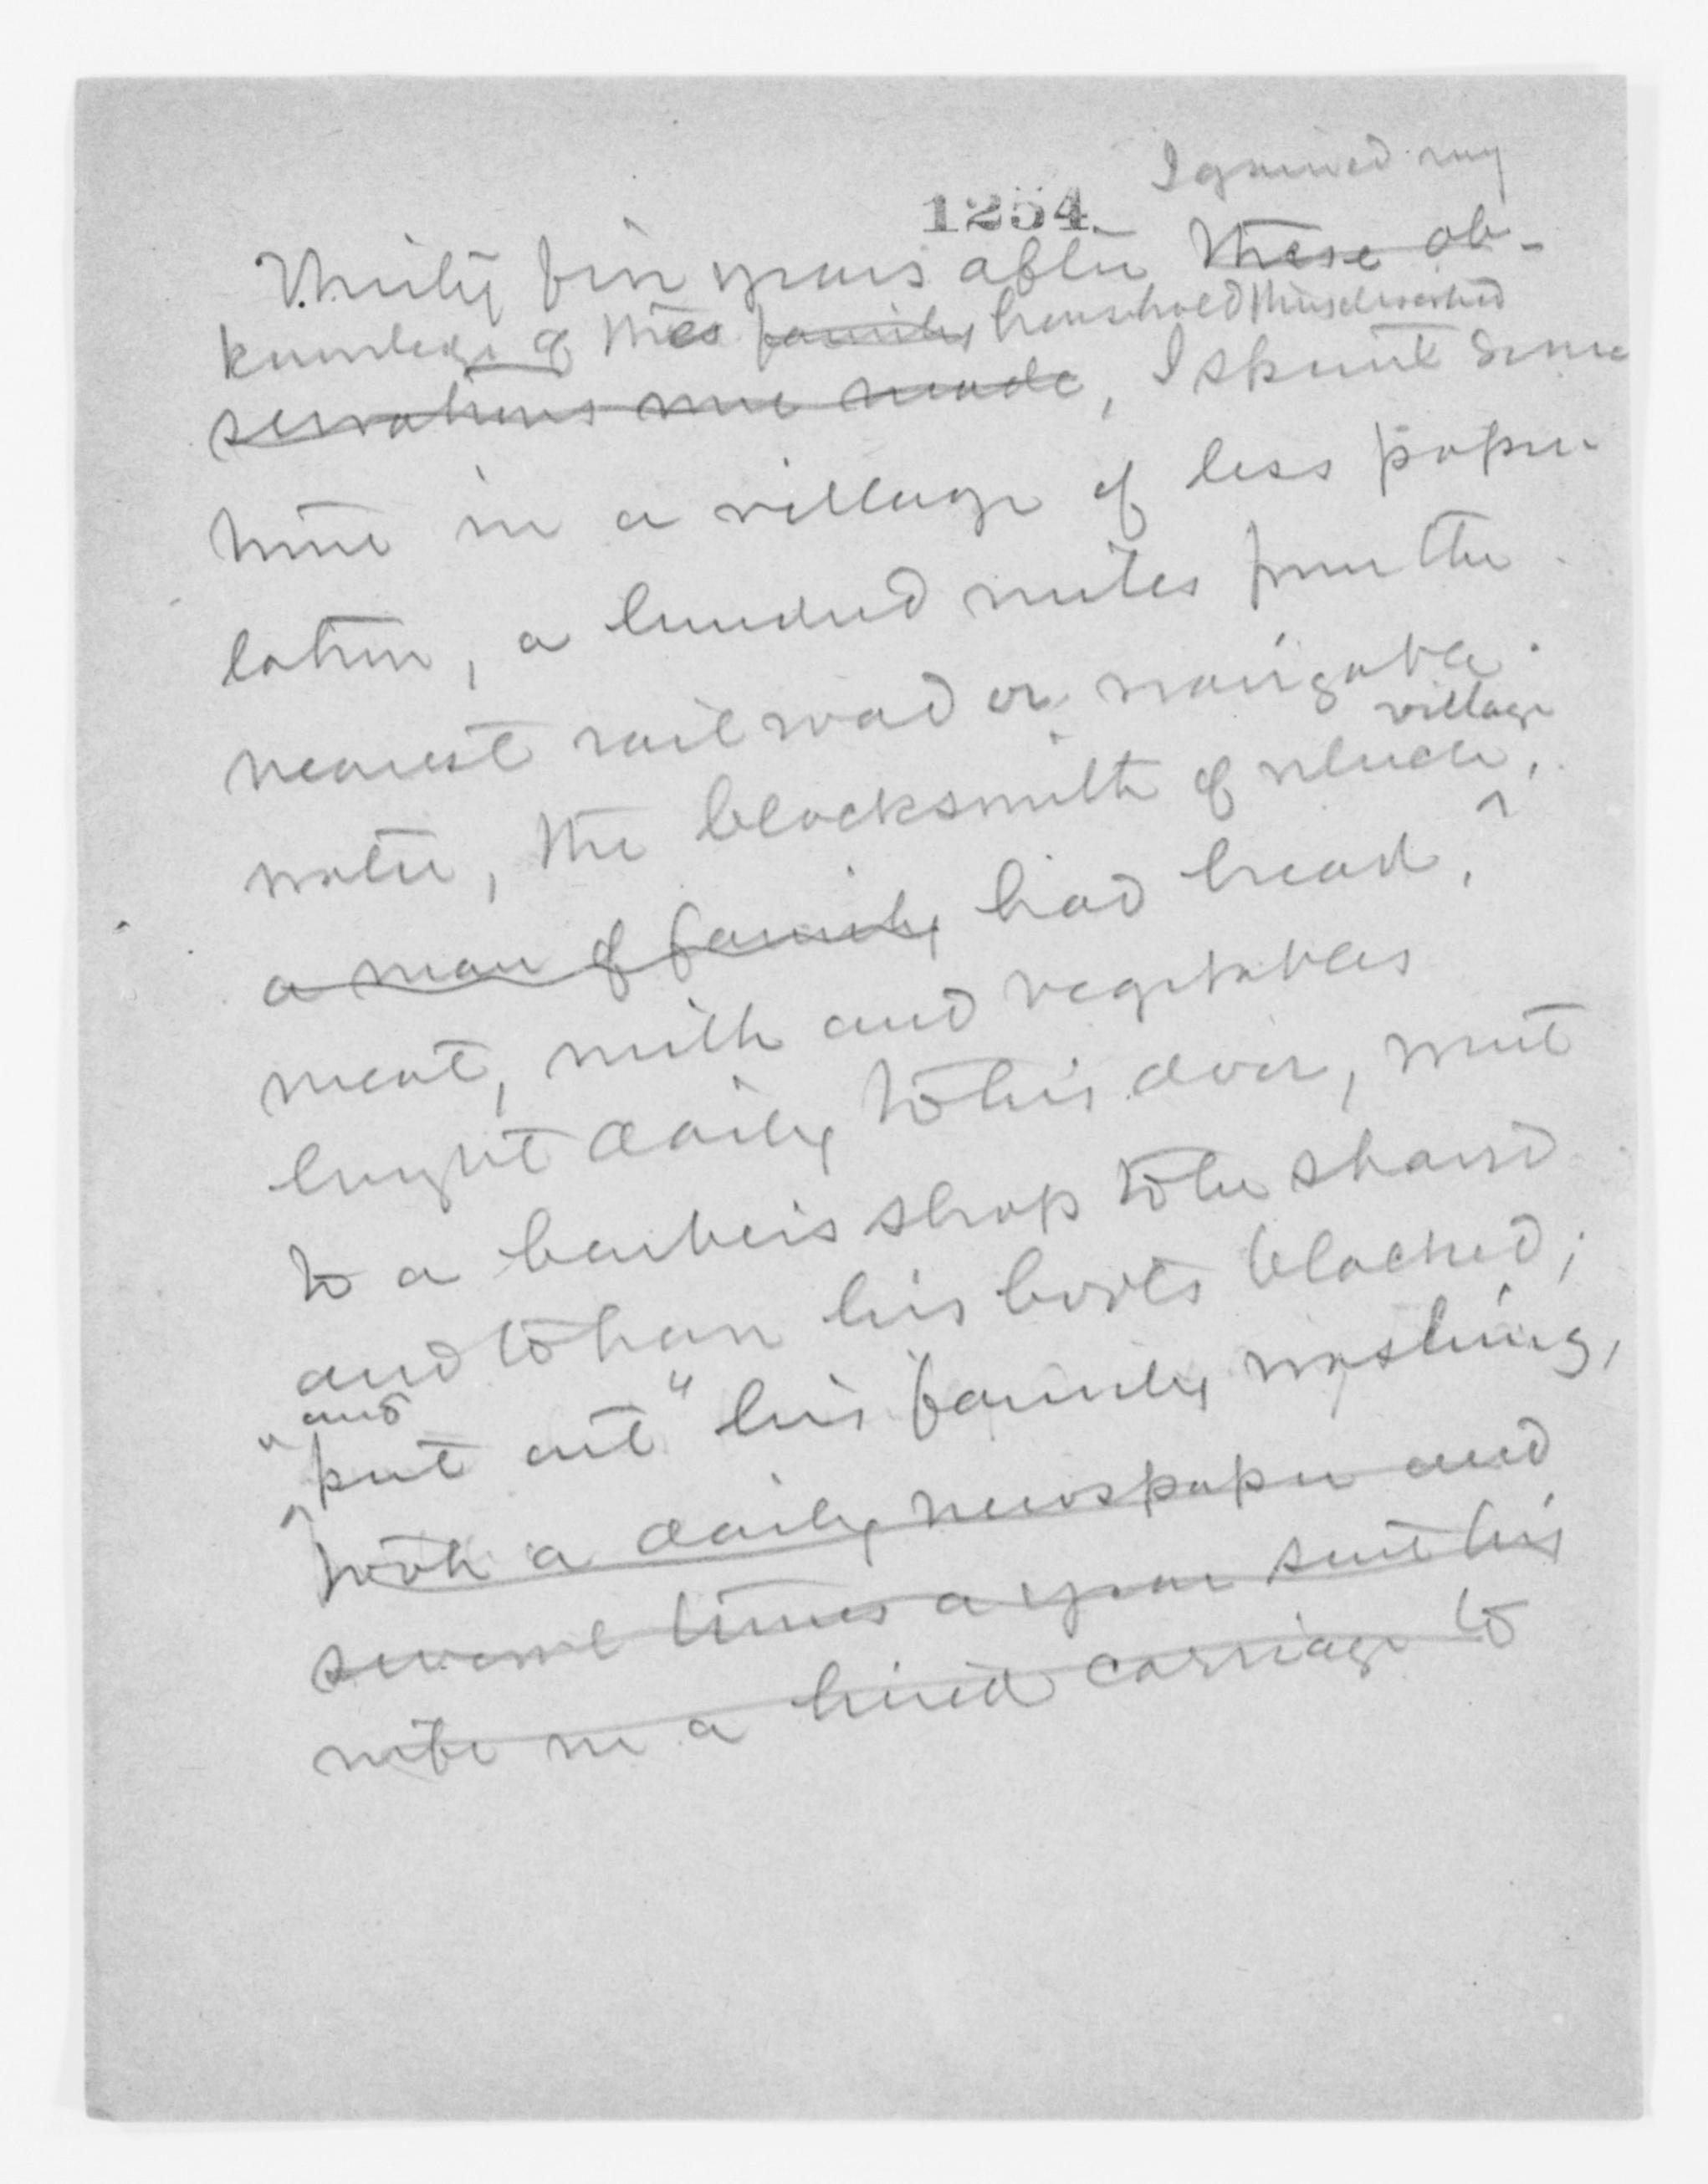 I gained my
1254
Thirty five years after these ob-
knowledge of this family household thus described
servations were made, I spent some
time in a village of less popu-
lation, a hundred miles from the
nearest railroad or navigable
village
water, the blacksmith of which,
a man of family had bread,
meat, milk and vegetables
brought daily to his door, went
to a barber's shop to be shaved
and to have his boots blacked;
and
"put out" his family washing,
took a daily newspaper and
several times a year sent his
wife in a hired carriage to